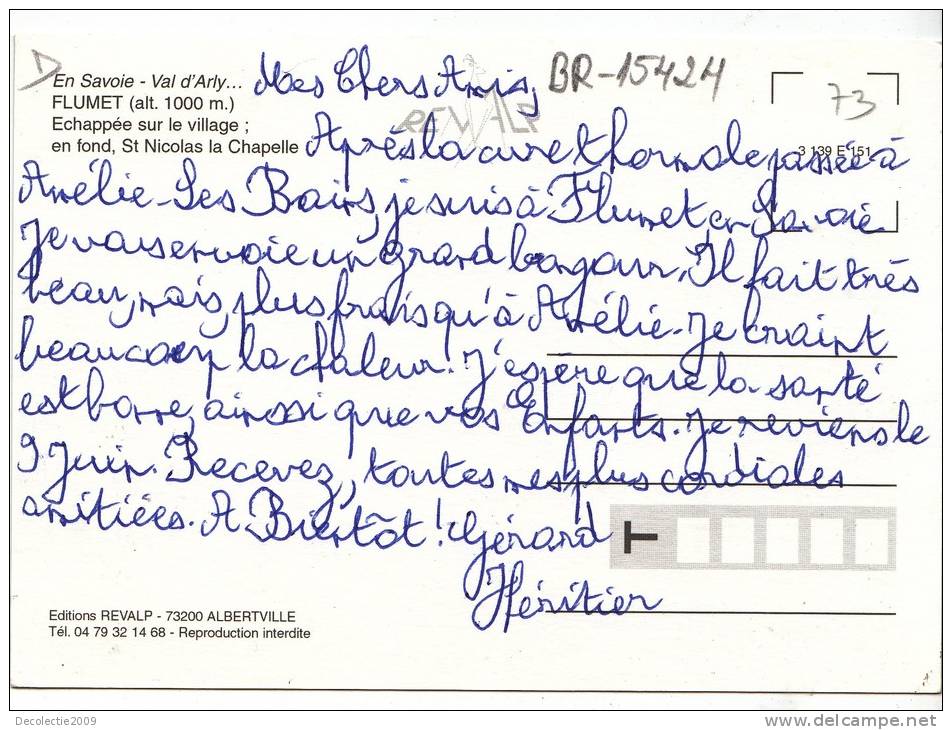 En Savoie - Val d'Arly...
FLUMET (alt. 1000 m.)
Echappée sur le village ;
en fond, St Nicolas la Chapelle
BR-15424
73
3 139 E 151
REVALP
Mes Chers Amis,
Après la cure thermale passée à
Amélie-Les Bains, je suis à Flumet en Savoie.
Je vous envoie un grand bonjour. Il fait très
beau, mais, plus frais qu'à Amélie. Je craint
beaucoup la chaleur. J'espère que la santé
est bonne, ainsi que vos Enfants. Je reviens le
9 Juin. Recevez, toutes mes plus cordiales
amitiées. A Bientôt! Gérard
Héritier
Editions REVALP - 73200 ALBERTVILLE
Tél. 04 79 32 14 68 - Reproduction interdite
Decolectie2009
www.delcampe.net